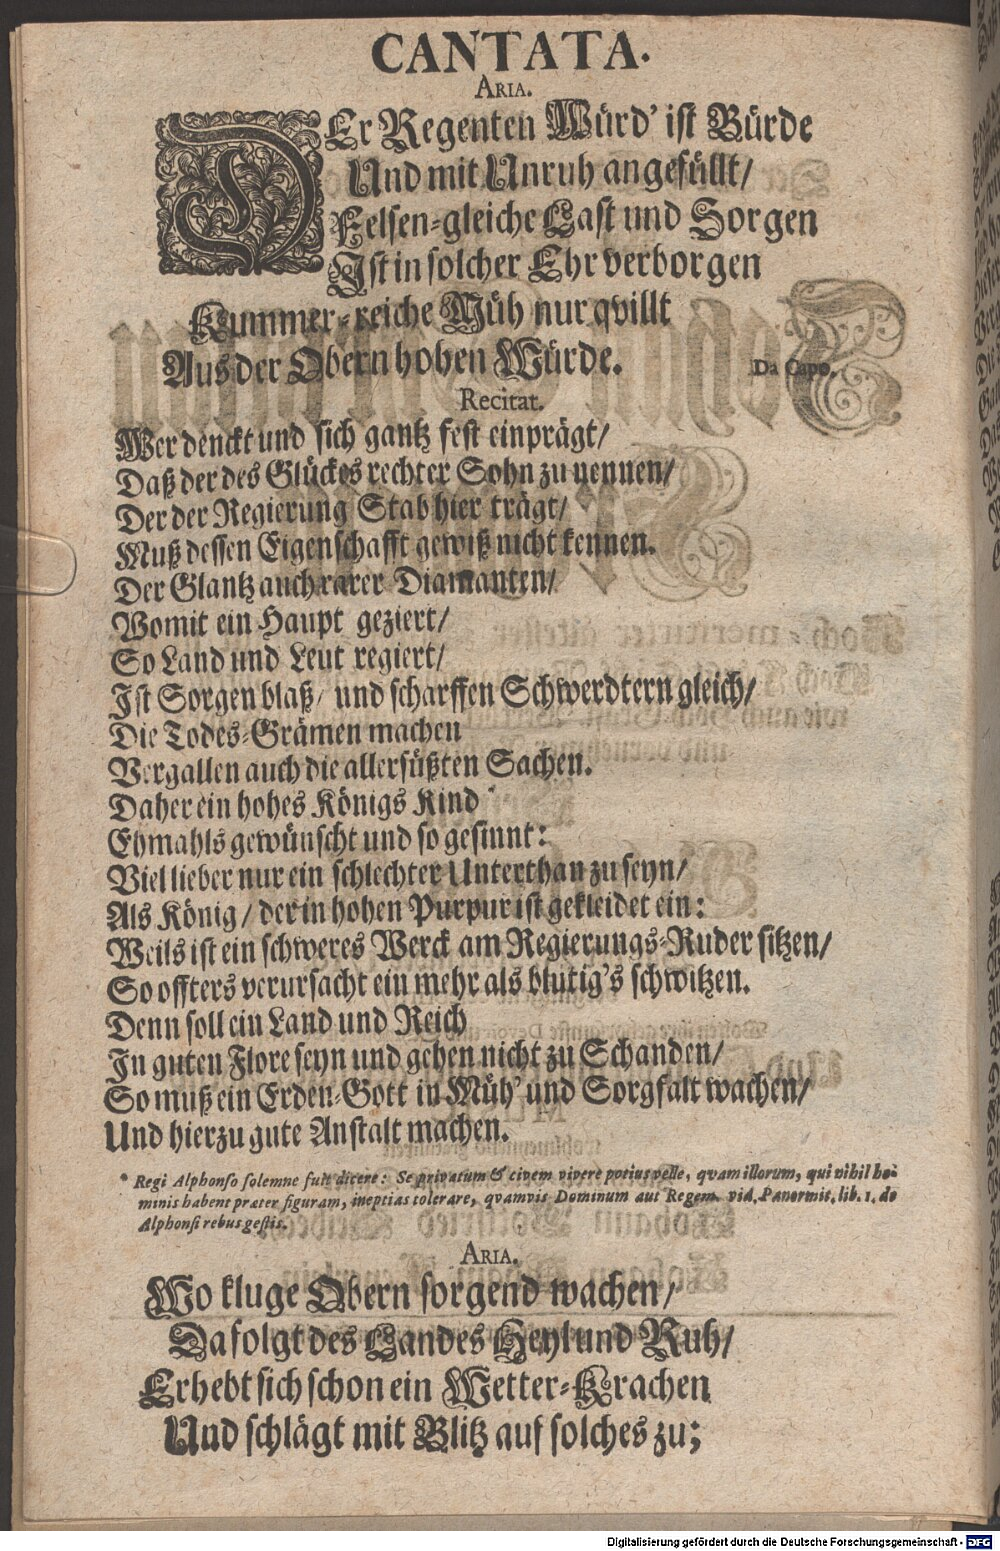 CANTATA.
ARIA.
DEr Regenten Würd' ist Bürde
Und mit Unruh angefüllt/
Felsen-gleiche Last und Sorgen
Ist in solcher Ehr verborgen
Kummer-reiche Müh nur qvillt
Aus der Obern hohen Würde. Da Capo.
Recitat.
Wer denckt und sich gantz fest einprägt/
Daß der des Glückes rechter Sohn zu nennen/
Der der Regierung Stab hier trägt/
Muß dessen Eigenschafft gewiß nicht kennen.
Der Glantz auch rarer Diamanten/
Womit ein Haupt geziert/
So Land und Leut regiert/
Ist Sorgen blaß/ und scharffen Schwerdtern gleich/
Die Todes-Grämen machen
Vergallen auch die allersüßten Sachen.
Daher ein hohes Königs Kind *
Ehmahls gewünscht und so gesinnt:
Viel lieber nur ein schlechter Unterthan zu seyn/
Als König/ der in hohen Purpur ist gekleidet ein:
Weils ist ein schweres Werck am Regierungs-Ruder sitzen/
So offters verursacht ein mehr als blutig's schwitzen.
Denn soll ein Land und Reich
In guten Flore seyn und gehen nicht zu Schanden/
So muß ein Erden-Gott in Müh' und Sorgfalt wachen/
Und hierzu gute Anstalt machen.
* Regi Alphonso solemne fuit dicere: Se privatum & civem vivere potius velle, qvam illorum, qui nihil ho-
minis habent præter figuram, ineptias tolerare, qvamvis Dominum aut Regem. vid. Panormit. lib. 1. de
Alphonsi rebus gestis.
ARIA.
Wo kluge Obern sorgend wachen/
Da folgt des Landes Heyl und Ruh/
Erhebt sich schon ein Wetter-Krachen
Und schlägt mit Blitz auf solches zu;
Digitalisierung gefördert durch die Deutsche Forschungsgemeinschaft - DFG